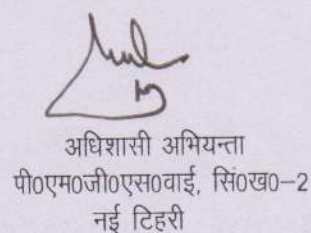 अधिशासी अभियन्ता
पी0एम0जी0एस0वाई, सिं0ख0–2
नई टिहरी